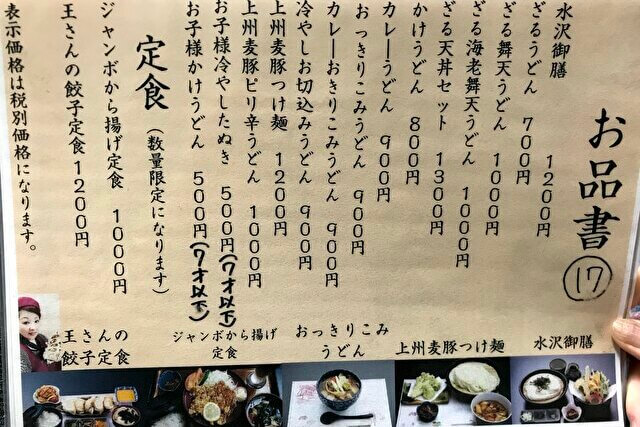 お品書
17
水沢御膳 1200円
ざるうどん 700円
ざる舞天うどん 1000円
ざる海老舞天うどん 1000円
ざる天丼セット 1300円
かけうどん 800円
カレーうどん 900円
おっきりこみうどん 900円
カレーおきりこみうどん 900円
冷やしお切込みうどん 900円
上州麦豚つけ麺 1200円
上州麦豚ピリ辛うどん 1000円
お子様冷やしたぬき 500円(7才以下)
お子様かけうどん 500円(7才以下)
定食(数量限定になります)
ジャンボから揚げ定食 1000円
王さんの餃子定食1200円
表示価格は税別価格になります。
王さんの
餃子定食
ジャンボから揚げ
定食
おっきりこみ
うどん
上州麦豚つけ麺
水沢御膳